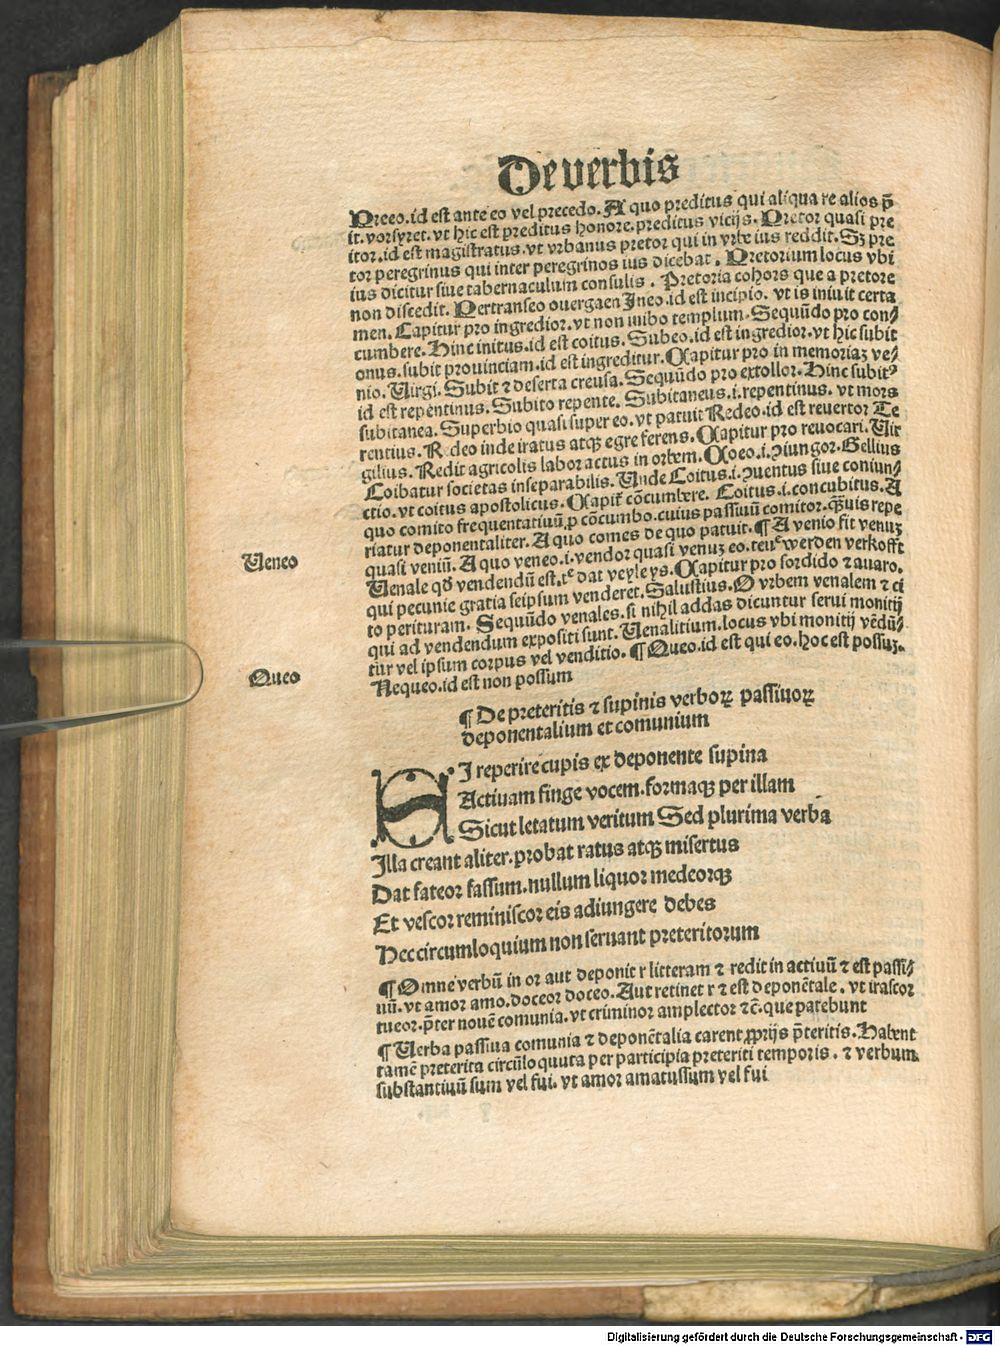 De verbis
Preeo.id est ante eo vel precedo. A quo preditus qui aliqua re alios p̄
it. vorsyret. vt hic est preditus honore. preditus vicijs. Pretor quasi pre
itor.id est magistratus. vt vrbanus pretor qui in vrbe ius reddit. Sz pre
tor peregrinus qui inter peregrinos ius dicebat. Pretorium locus vbi
ius dicitur siue tabernaculum consulis. Pretoria cohors que a pretore
non discedit. Pertranseo ouergaen Ineo.id est incipio. vt is iniuit certa
men. Capitur pro ingredior. vt non inibo templum. Sequūdo pro con⸗
cumbere. Hinc initus.id est coitus. Subeo.id est ingredior. vt hic subit
onus. subit prouinciam.id est ingreditur. Capitur pro in memoriaz ve⸗
nio. Virgi. Subit ⁊ deserta creusa. Sequūdo pro extollor. Hinc subitꝰ
id est repentinus. Subito repente. Subitaneus.i.repentinus. vt mors
subitanea. Superbio quasi super eo. vt patuit Redeo.id est reuertor Te
rentius. Redeo inde iratus atqꝫ egre ferens. Capitur pro reuocari. Vir
gilius. Redit agricolis labor actus in orbem. Coeo.i.ꝯiungor. Gellius
Coibatur societas inseparabilis. Unde Coitus.i.ꝯuentus siue coniun⸗
ctio. vt coitus apostolicus. Capit̄ cōcumbere. Coitus.i.concubitus. A
quo comito frequentatiuū ꝓ cōcumbo. cuius passiuū comitor. qꝫuis repe
riatur deponentaliter. A quo comes de quo patuit. ¶ A venio fit venuz
quasi veniū. A quo veneo.i.vendor quasi venuz eo. teuͤ werden verkofft
Venale qd̄ vendendū est. tͤ dat veyle ys. Capitur pro sordido ⁊ auaro.
qui pecunie gratia seipsum venderet. Salustius. O vrbem venalem ⁊ ci
to perituram. Sequūdo venales. si nihil addas dicuntur serui monitij
qui ad vendendum expositi sunt. Venalitium. locus vbi monitij vēdū⸗
tur vel ipsum corpus vel venditio. ¶ Queo.id est qui eo. hoc est possuz.
Nequeo.id est non possum
Veneo
Queo
¶ De preteritis ⁊ supinis verboꝝ passiuoꝝ
deponentalium et comunium
SI reperire cupis ex deponente supina
Actiuam finge vocem. formaqꝫ per illam
Sicut letatum veritum Sed plurima verba
Illa creant aliter. probat ratus atqꝫ misertus
Dat fateor fassum. nullum liquor medeorqꝫ
Et vescor reminiscor eis adiungere debes
Hec circumloquium non seruant preteritorum
¶ Omne verbū in or aut deponit r litteram ⁊ redit in actiuū ⁊ est passi⸗
uū. vt amor amo. doceor doceo. Aut retinet r ⁊ est deponētale. vt irascor
tueor. p̄ter nouē comunia. vt criminor amplector ⁊c̄. que patebunt
¶ Verba passiua comunia ⁊ deponētalia carent ꝓprijs p̄teritis. Habent
tamē preterita circūloquuta per participia preteriti temporis. ⁊ verbum
substantiuū sum vel fui. vt amor amatus sum vel fui
Digitalisierung gefördert durch die Deutsche Forschungsgemeinschaft - DFG